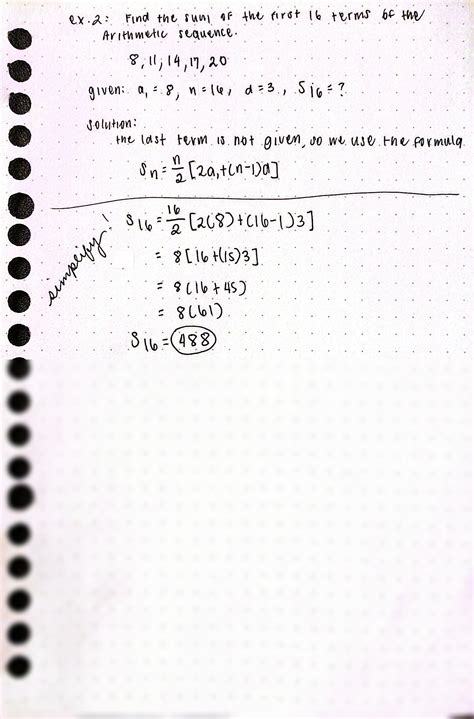 ex. 2: Find the sum of the first 16 terms of the
Arithmetic sequence.
8, 11, 14, 17, 20
given: a₁ = 8, n = 16, d = 3, S₁₆ = ?
solution:
the last term is not given, so we use the formula
Sn = n/2 [2a₁+(n-1)d]
simplify!
S₁₆ = 16/2 [2(8)+(16-1)3]
= 8[16+(15)3]
= 8(16+45)
= 8(61)
S₁₆ = 488